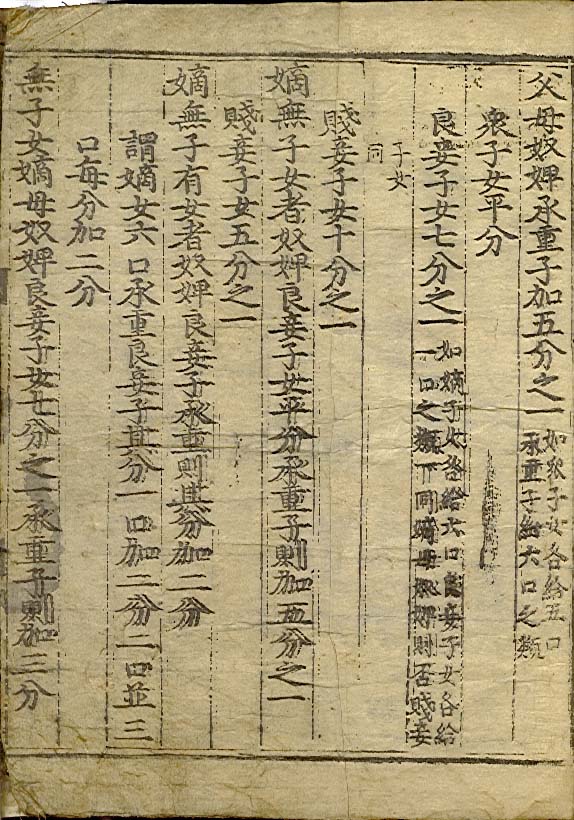 父母奴婢承重子加五分之一 如衆子女各給五口
承重子給六口之類
衆子女平分
良妾子女七分之一 如嫡子女各給六口良妾子女各給
一口之類下同嫡母奴婢則否賤妾
子女
同
賤妾子女十分之一
嫡無子女者奴婢良妾子女平分承重子則加五分之一
賤妾子女五分之一
嫡無子有女者奴婢良妾子承重則其分加二分
謂嫡女六口承重良妾子其分一口加二分二口並三
口每分加二分
無子女嫡母奴婢良妾子女七分之一承重子則加三分